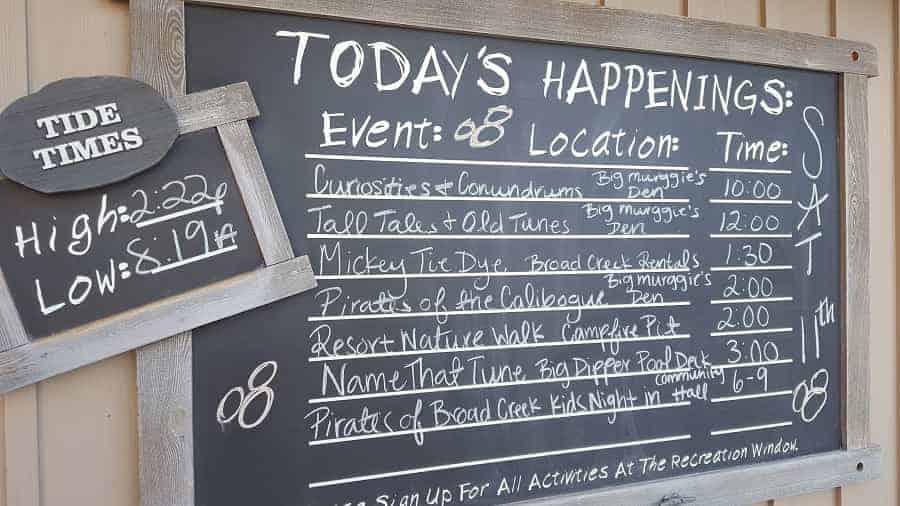 TODAY'S HAPPENINGS:
Event: Location: Time:
Curiosities & Conundrums Big Murggie's Den 10:00
Tall Tales & Old Tunes Big Murggie's Den 12:00
Mickey Tie Dye Broad Creek Rentals 1:30
Pirates of the Calibogue Big Murggie's Den 2:00
Resort Nature Walk Campfire Pit 2:00
Name That Tune Big Dipper Pool Deck 3:00
Pirates of Broad Creek Kids Night in Community Hall 6-9
Sign Up For All Activities At The Recreation Window.
SAT 11th
TIDE
TIMES
High: 2:22P
Low: 8:19A